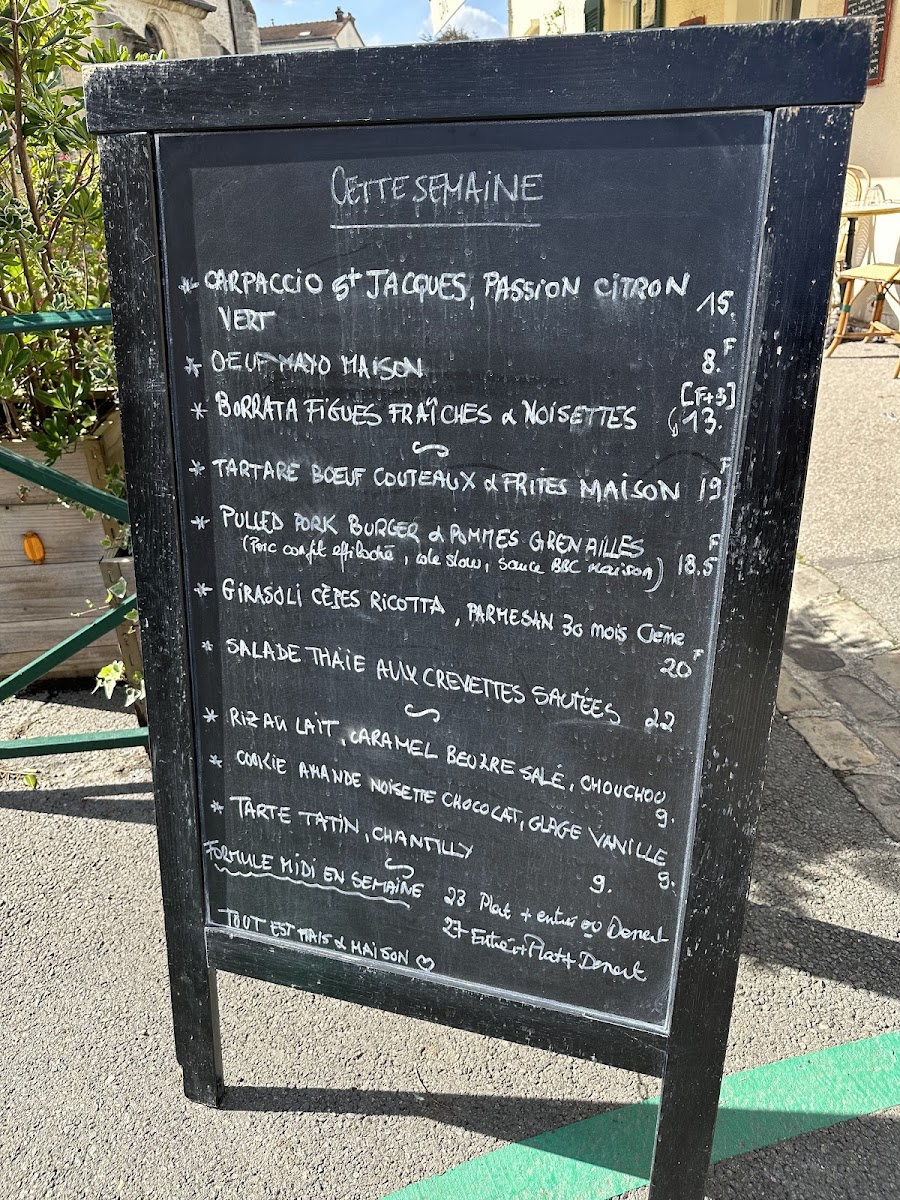 CETTE SEMAINE
* CARPACCIO St JACQUES, PASSION CITRON
VERT 15.
* OEUF MAYO MAISON 8.F
[F+3]
* BURRATA FIGUES FRAÎCHES & NOISETTES 13.
* TARTARE BOEUF COUTEAUX & FRITES MAISON 19F
* PULLED PORK BURGER & POMMES GRENAILLES F
(Porc confit effiloché, cole slow, sauce BBC maison) 18.5
* GIRASOLI CÈPES RICOTTA, PARMESAN 30 mois Crème
20F
* SALADE THAIE AUX CREVETTES SAUTÉES 22
* RIZ AU LAIT, CARAMEL BEURRE SALÉ, CHOUCHOU
9.
* COOKIE AMANDE NOISETTE CHOCOLAT, GLACE VANILLE
9.
* TARTE TATIN, CHANTILLY
9.
FORMULE MIDI EN SEMAINE
23 Plat + entrée ou Dessert
27 Entrée+Plat+Dessert
TOUT EST FRAIS & MAISON ♡